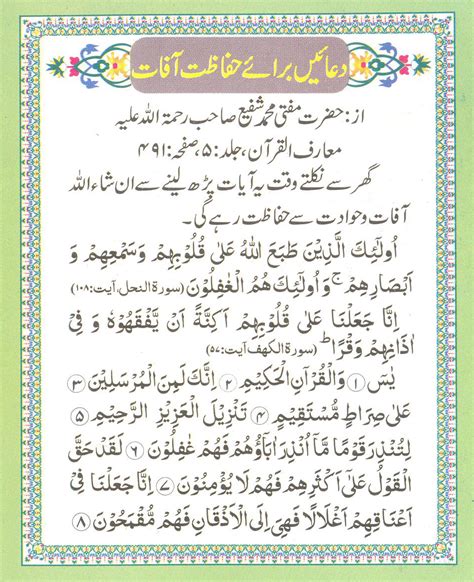 دعائیں برائے حفاظت آفات
از: حضرت مفتی محمد شفیع صاحب رحمۃ اللہ علیہ
معارف القرآن، جلد: ۵، صفحہ: ۴۹۱
گھر سے نکلتے وقت یہ آیات پڑھ لینے سے ان شاء اللہ
آفات و حوادث سے حفاظت رہے گی۔
اُولٰٓئِكَ الَّذِيْنَ طَبَعَ اللّٰهُ عَلٰى قُلُوْبِهِمْ وَسَمْعِهِمْ وَ
اَبْصَارِهِمْ ج وَاُولٰٓئِكَ هُمُ الْغٰفِلُوْنَ (سورۃ النحل، آیت: ۱۰۸)
اِنَّا جَعَلْنَا عَلٰى قُلُوْبِهِمْ اَكِنَّةً اَنْ يَّفْقَهُوْهُ وَ فِيْٓ
اٰذَانِهِمْ وَقْرًا ط (سورۃ الکھف آیت: ۵۷)
يٰسٓ ۱ وَالْقُرْاٰنِ الْحَكِيْمِ ۲ اِنَّكَ لَمِنَ الْمُرْسَلِيْنَ ۳
عَلٰى صِرَاطٍ مُّسْتَقِيْمٍ ۴ تَنْزِيْلَ الْعَزِيْزِ الرَّحِيْمِ ۵
لِتُنْذِرَ قَوْمًا مَّآ اُنْذِرَ اٰبَآؤُهُمْ فَهُمْ غٰفِلُوْنَ ۶ لَقَدْ حَقَّ
الْقَوْلُ عَلٰٓى اَكْثَرِهِمْ فَهُمْ لَا يُؤْمِنُوْنَ ۷ اِنَّا جَعَلْنَا فِيْٓ
اَعْنَاقِهِمْ اَغْلٰلًا فَهِيَ اِلَى الْاَذْقَانِ فَهُمْ مُّقْمَحُوْنَ ۸